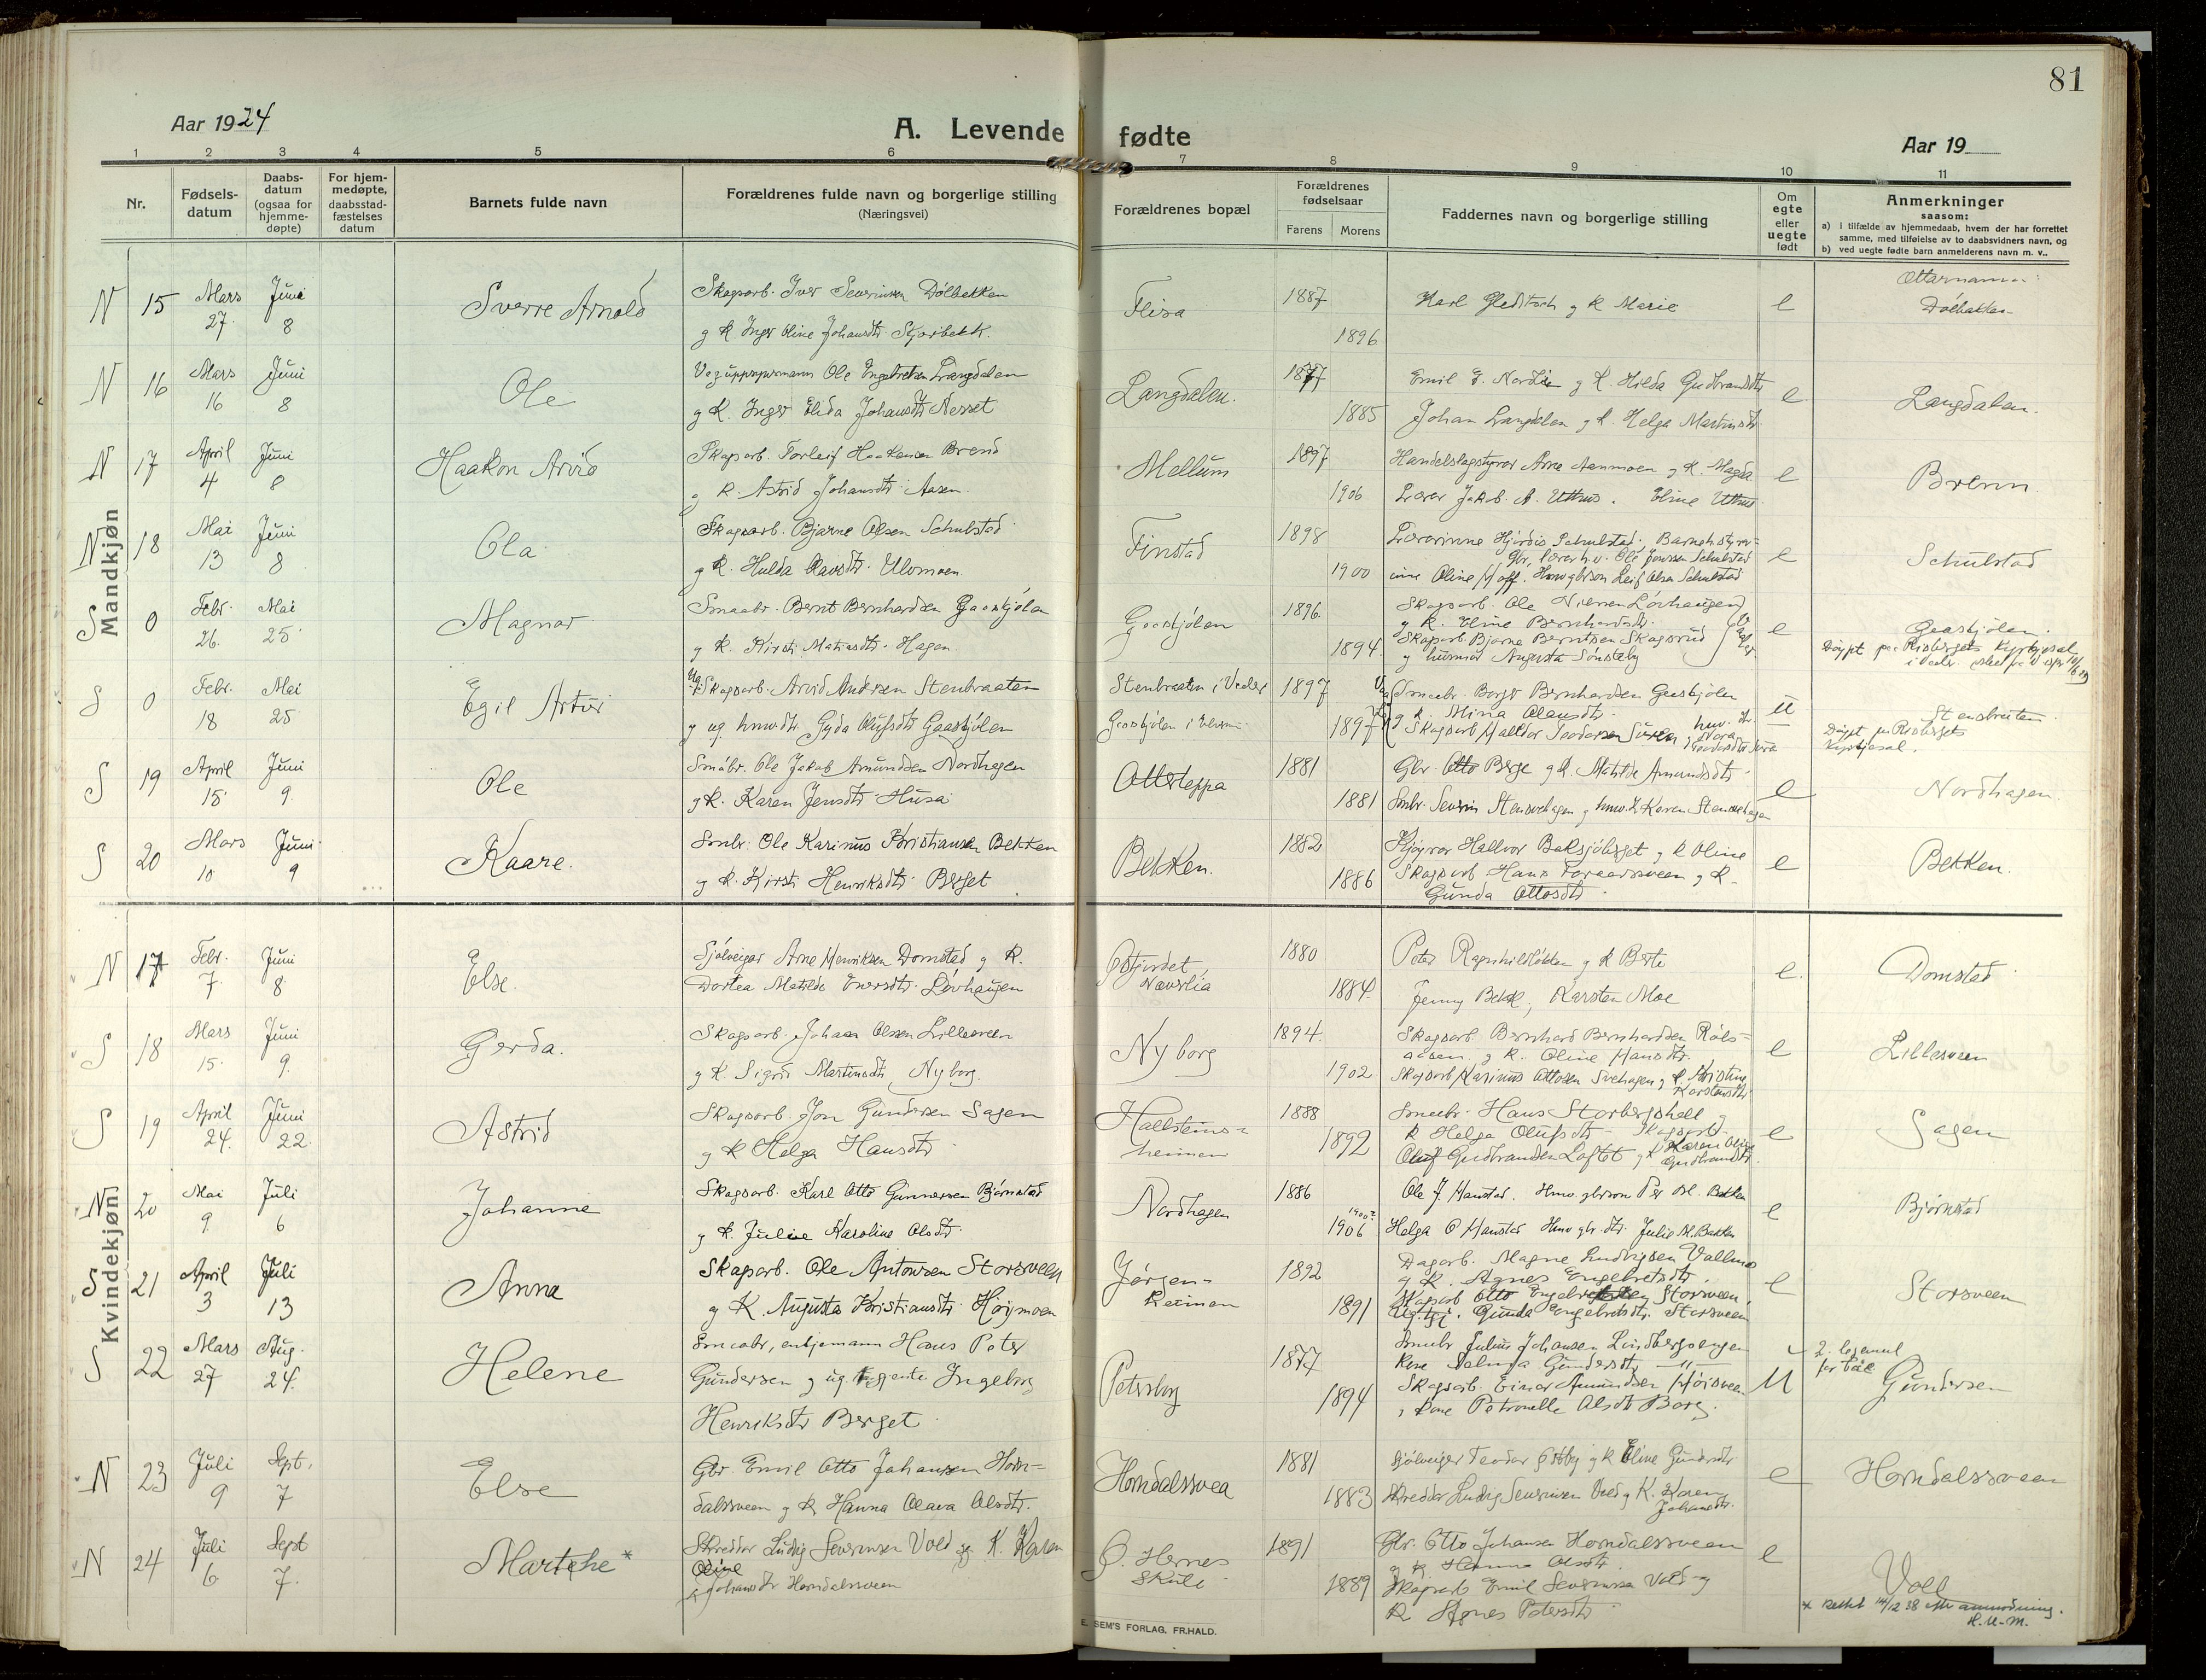 81
Aar 1924
A. Levende fødte
Aar 19
1 2 3 4 5 6 7 8 9 10 11
Nr.
Fødsels-
datum
Daabs-
datum
(ogsaa for
hjemme-
døpte)
For hjem-
medøpte,
daabsstad-
fæstelses
datum
Barnets fulde navn
Forældrenes fulde navn og borgerlige stilling
(Næringsvei)
Forældrenes bopæl
Forældrenes
fødselsaar
Farens Morens
Faddernes navn og borgerlige stilling
Om
egte
eller
uegte
født
Anmerkninger
saasom:
a) i tilfælde av hjemmedaab, hvem der har forrettet
samme, med tilføielse av to daabsvidners navn, og
b) ved uegte fødte barn anmelderens navn m. v..
Mandkjøn
N 15 Mars 27. Juni 8 Sverre Arnold
Skogsarb. Iver Severinsen Dölbekken
g K. Inger Oline Johansdtr. Skjorbekk.
Flisa 1887 1896
Karl Gleditsch g K Marie
e
Etternamn:
Dölbekken
N 16 Mars 16 Juni 8 Ole
Ole Engebretsen Langdalen
g K. Inger Elida Johansdtr Nesset
Langdalen. 1877 1885
Emil E. Nordlien g K. Hilda Gudbrandsdtr
Johan Langdalen g K. Helga Martinsdtr
e
Langdalen.
N 17 April 4 Juni 8 Haakon Arvid
Skogsarb. Torleif Haakensen Brend
g K. Astrid Johansdtr. Aasen.
Mellum 1897 1906
Handelslagstyrer Arne Aanmoen g K. Magda
Lærer Jakob A. Uthus. Eline Uthus
e
Brenn
N 18 Mai 13 Juni 8 Ola
Skogsarb. Bjarne Olsen Schulstad
g K. Hulda Olavsdtr. Ulvmoen
Finstad 1898 1900
Lærerinne Hjördis Schulstad, Barneh.styrer-
Gbr, lærer h.v. Ole Jonssen Schulstad
inne Oline Hoff. Hmvgbrson Leif Olsen Schulstad
e
Schulstad
S 0 Febr. 26. Mai 25 Magnar
Smaabr. Bernt Bernhardsen Gaaskjölen
g K. Kirsti Matiasdtr. Hagen
Gaaskjölen 1896 1894
Skogsarb. Ole Nilssen Lövhaugen
g K. Eline Bernhardsdtr.
Skogsarb. Bjarne Berntsen Skogsrud
g husmor Augusta Sönsteby
e
Gaaskjölen.
Döypt paa Risbergets Kyrkjesal
S 0 Febr. 18 Mai 25 Egil Artur
Ug. Skogsarb. Arvid Andersen Stenbraaten
g ug. hmvdtr. Gyda Olufsdtr Gaaskjölen
Stenbraaten i Vaaler
Gaaskjölen i Elverum
1897 1897
Smaabr. Borger Bernhardsen Gaaskjölen
g K. Mina Olausdtr.
Skogsarb. Halldor Teodorsen
u
Stenbraaten
Döypt paa Risbergets
Kyrkjesal.
S 19 April 15 Juni 9. Ole
Småbr. Ole Jakob Amundsen Nordhagen
g K. Karen Jensdtr. Husa
Otterteppa 1881 1881
Gbr. Otto Berge g K. Matilde Amundsdtr.
Smbr. Severin Stensvehagen g hmv. K Karen Stensvehagen
e
Nordhagen
S 20 Mars 10 Juni 9 Kaare.
Smbr. Ole Karinus Kristiansen Bekken
g K. Kirsti Henriksdtr. Berget
Bekken. 1882 1886
Hallvor Baksjöberget g K Oline
Skogsarb Hans g K.
Gunda Ottosdtr
e
Bekken.
Kvindekjøn
N 17 Febr. 7. Juni 8. Else.
Sjölveigar Arne Henriksen Domstad g K.
Dortea Matilde Enersdtr. Lövhaugen
Östjordet, Næverlia 1880 1884.
Peter Ragnhildslökken g K Berte
Jenny Bekk, Karsten Moe
e.
Domstad
S 18 Mars 15. Juni 9. Gerda.
Skogsarb. Johan Olsen Lillesveen
g K. Sigrid Martinsdtr. Nyborg.
Nyborg 1894. 1902
Skogsarb. Bernhard Bernhardsen Röls-
aasen. g K. Oline Hansdtr.
Skogsarb Karinus Ottosen Svehagen g K. Kristine
Karstensdtr.
e
Lillesveen
S 19 April 24. Juni 22. Astrid
Skogsarb. Jon Gundersen Sagen
g K Helga Hansdtr.
Hallsteins-
heimen
1888 1892
Smaabr. Hans Storbergshell g
K Helga Olufsdtr. Skogsarb
Oluf Gudbrandsen Loftet g K Karen Oline
Gudbrandsdtr.
e
Sagen
N 20 Mai 9. Juli 6 Johanne
Skogsarb. Karl Otto Gunnarsen Björnstad
g K. Julie Karoline Olsdtr.
Nordhagen 1886 1900? 1906
Ole J. Hanstad. Hmv. gbrson Per M. Bakken
Helga O Hanstad Hmv gbr. dtr. Julie M. Bakken
e
Björnstad
S 21 April 3 Juli 13 Anna
Skogsarb. Ole Antonsen Storsveen
g K. Augusta Kristiansdtr. Höymoen
Jörgen-
heimen
1892 1891
Dagarb. Magne Ludvigsen Vallmo
g K. Agnes Engebretsdtr.
Skogsarb Otto Engebretsen Storsveen,
Ug. tj. Gunda Engebretsdtr. Storsveen
e
Storsveen
S 22 Mars 27 Aug. 24. Helene
Smaabr, enkjemann Hans Peter
Gundersen g ug. tjgjente Ingeborg
Henriksdtr Berget.
Petersborg 1877 1894
Smabr Julius Johansen Lindbergsengen
Kone Selma Gundersdtr. —"—
Skogsarb. Einar Amundsen Höisveen
, Kone Petronelle Olsdtr Borg.
U
2. legemål
for båe
Gundersen
N 23 Juli 9 Sept. 7 Else
Gbr. Emil Otto Johansen Horn-
dalssveen g K Hanna Olava Olsdtr.
Horndalssvea 1881 1883
Sjölveiger Teodor Östby g K Eline Gundersdtr
Skredder Ludvig Severinsen Vold g K. Karen
Johansdtr.
e
Horndalssveen
N 24 Juli 6 Sept 7. Marthe *
Skredder Ludvig Severinsen Vold g K. Karen
Oline
Johansdtr Horndalssveen
Ö. Hernes
Skule
1891 1889
Gbr. Otto Johansen Horndalssveen
g K Hanna Olsdtr.
Skogsarb Emil Severinsen Vold g
K Agnes Petersdtr.
e
Voll
* Rettet 14/2 38 efter anmodning.
H.U.M.
E. SEM'S FORLAG, FR.HALD.